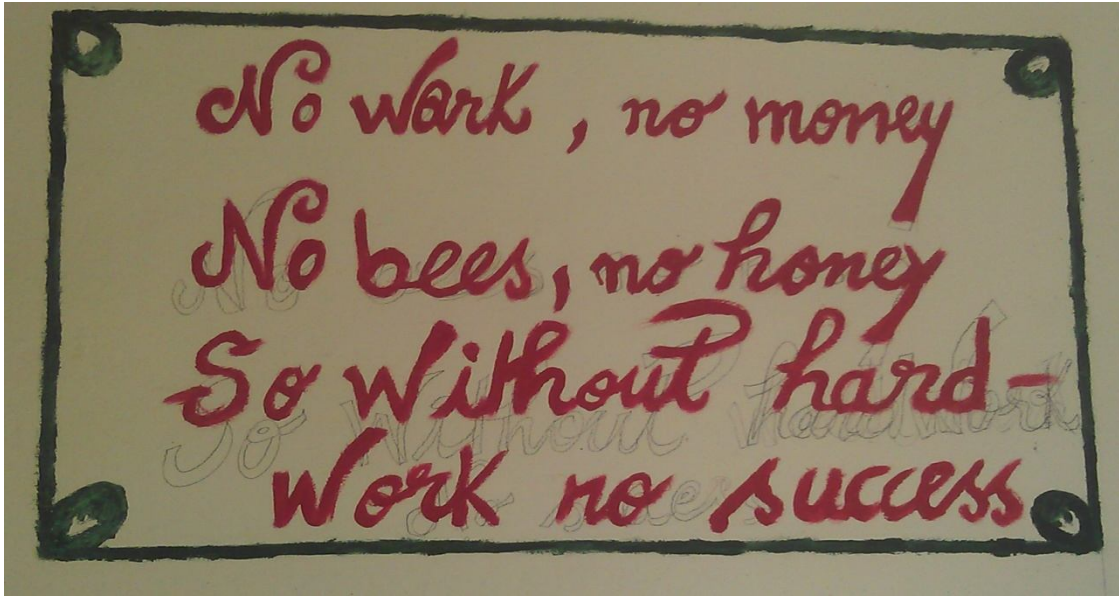 No work, no money
No bees, no honey
So Without hard-
Work no success